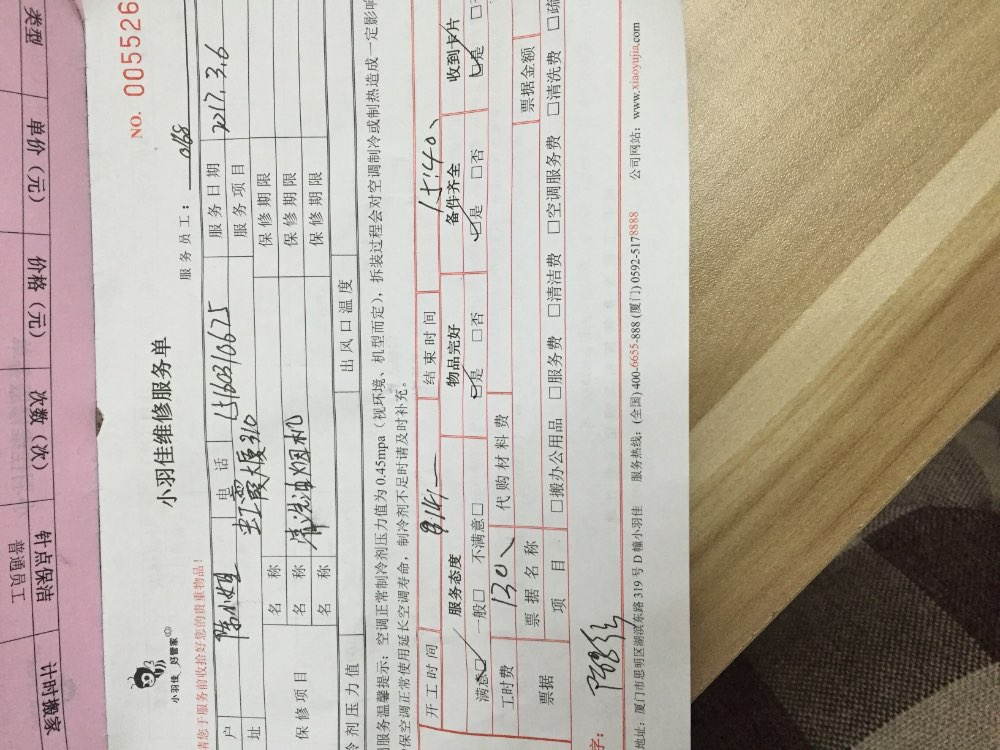 类型 单价（元） 价格（元） 次数（次） 钟点保洁 计时搬家
普通员工
小羽佳 好管家
小羽佳维修服务单
NO. 005526
服务员工： 0168
请您于服务前收拾好您的贵重物品！
户 陈小姐 电话 15160310625 服务日期 2017.3.6
址 大厦310 服务项目
保修项目 名称 清洗油烟机 保修期限
名称 保修期限
名称 保修期限
冷剂压力值 出风口温度
服务温馨提示：空调正常制冷剂压力值为 0.45mpa（视环境、机型而定），拆装过程会对空调制冷或制热造成一定影响
保空调正常使用延长空调寿命，制冷剂不足时请及时补充。
开工时间 结束时间 15:40
服务态度 物品完好 备件齐全 收到卡片
满意☑ 一般□ 不满意□ ☑是 □否 ☑是 □否 ☑是
工时费 130 代购材料费
票据 票据名称 票据金额
项目 □搬办公用品 □服务费 □清洁费 □空调服务费 □清洗费 □疏
字：
地址：厦门市思明区湖滨东路 319 号 D 幢小羽佳 服务热线：(全国) 400-6655-888 (厦门) 0592-5178888 公司网站：www.xiaoyujia.com